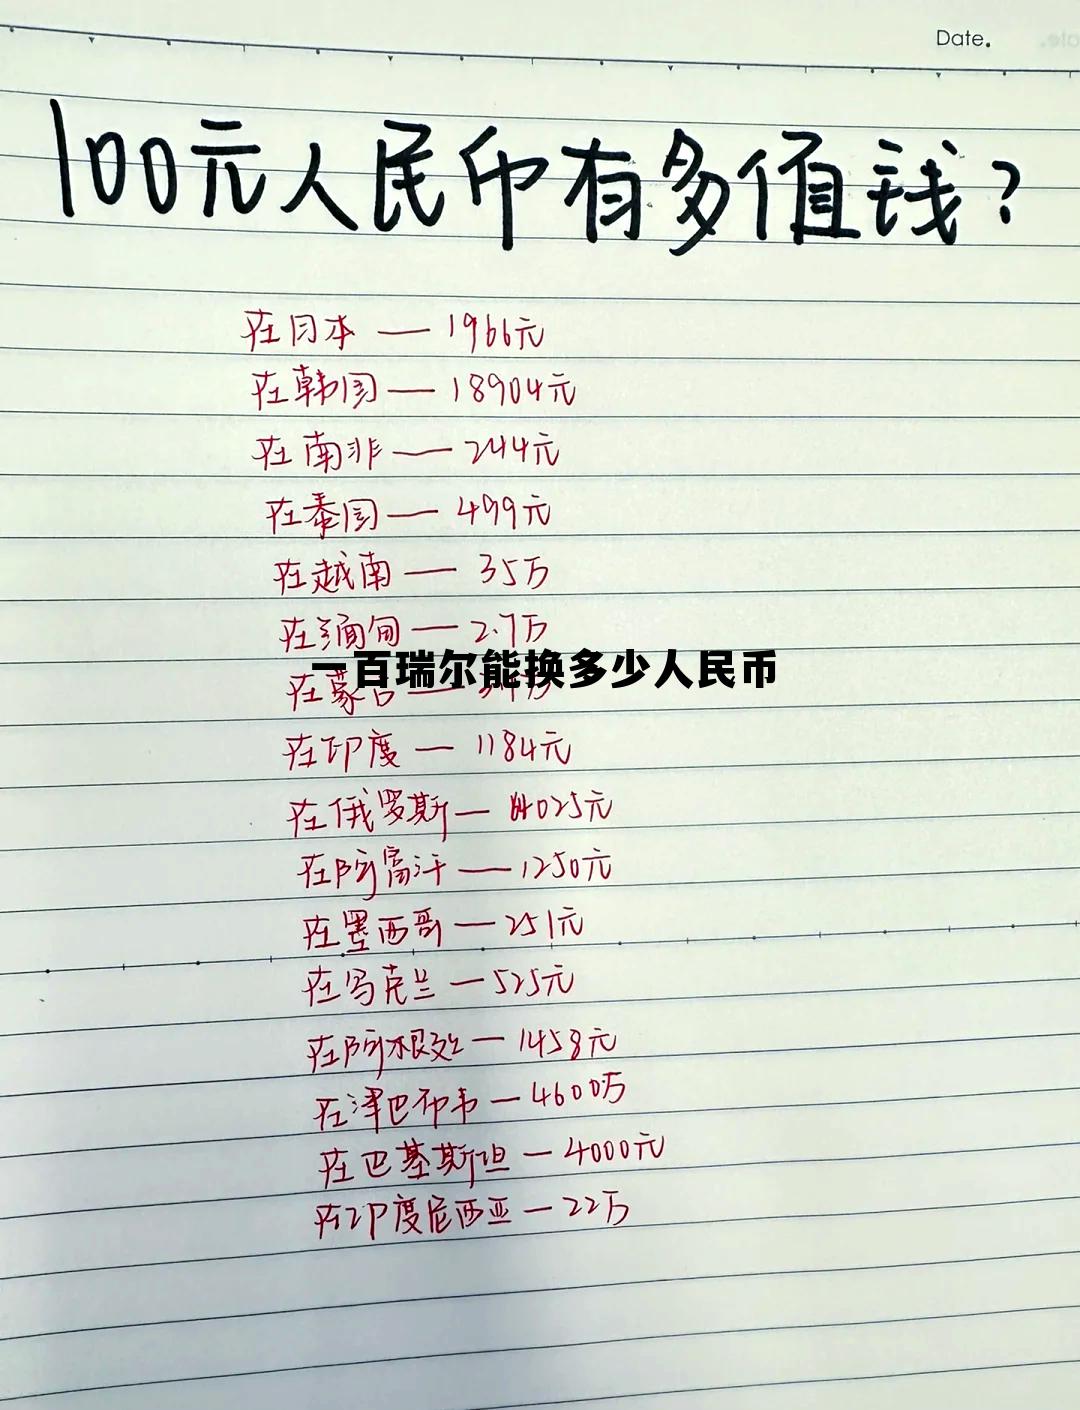 Date.
100元人民币有多值钱?
在日本 — 1966元
在韩国 — 18904元
在南非 — 244元
在泰国 — 499元
在越南 — 35万
在缅甸 — 2.7万
一百瑞尔能换多少人民币
在蒙古 —
在印度 — 1184元
在俄罗斯 — 025元
在阿富汗 — 1250元
在墨西哥 — 251元
在乌克兰 — 525元
在阿根廷 — 1458元
在津巴布韦 — 4600万
在巴基斯坦 — 4000元
在印度尼西亚 — 22万